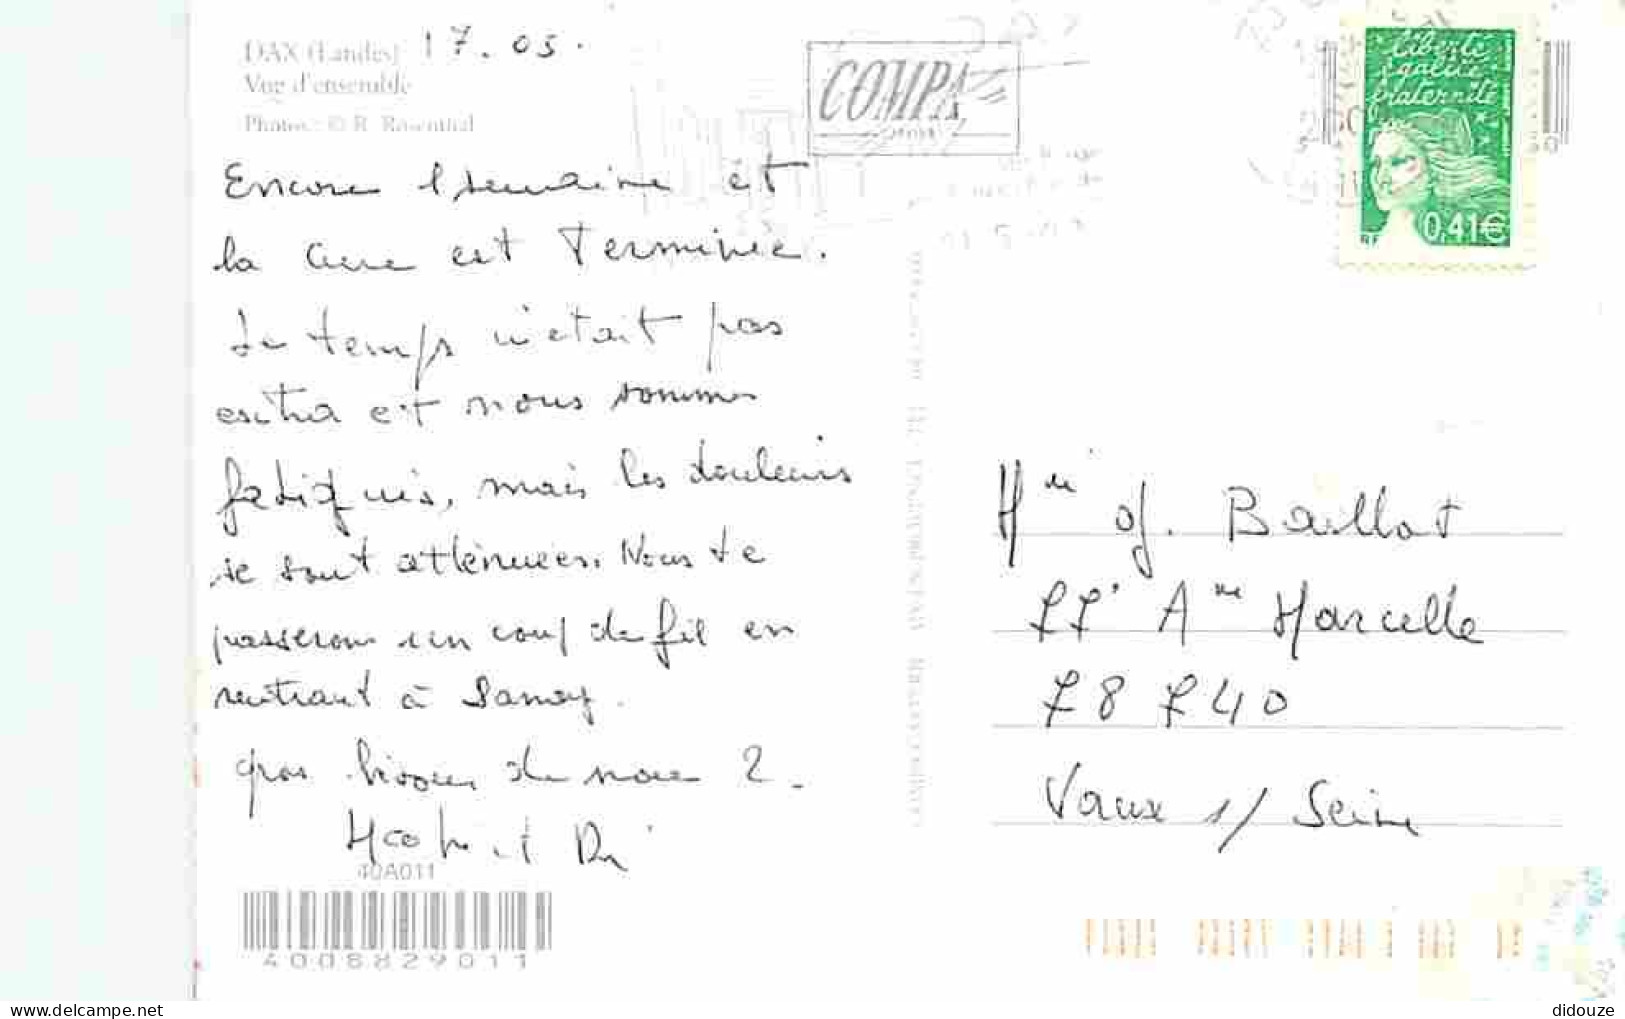 DAX (Landes) 17.05.
Vue d'ensemble
Photos : © R. Rosenthal
COMPA
Liberté
égalité
fraternité
0,41€
RF
Encore 1 semaine et
la cure est terminée.
Le temps n'était pas
extra et nous sommes
fatigués, mais les douleurs
se sont atténuées. Nous te
passerons un coup de fil en
rentrant à Samoy.
gros bisous de nous 2.
40A011
4008829011
Mme G. Baillot
77 Aue Marcelle
78740
Vaux s/ Seine
didouze